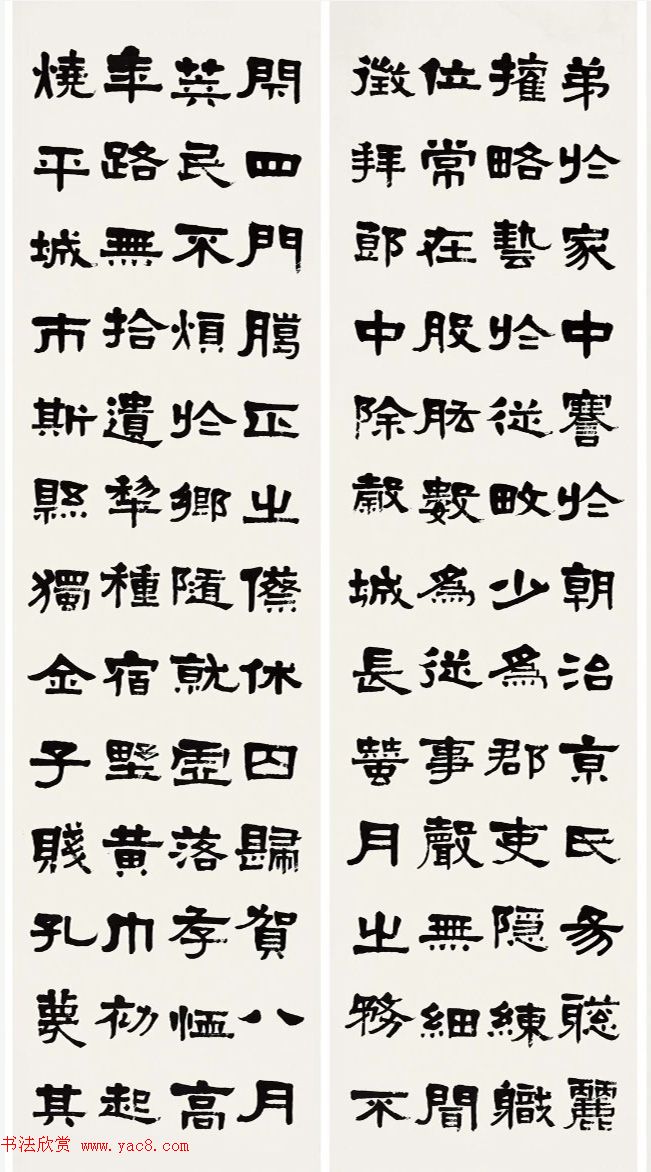 弟於家中謇於朝治京氏易聰麗
權略藝於從畋少為郡吏隱練職
位常在股肱數為從事聲無細聞
徵拜郎中除穀城長蠶月之務不
閉四門臈正之僚休囚歸賀八月
筭民不煩於鄉隨就虛落存恤高
年路無拾遺犁種宿野黃巾初起
燒平城市斯縣獨全子賤孔蔑其
书法欣赏 www.yac8.com